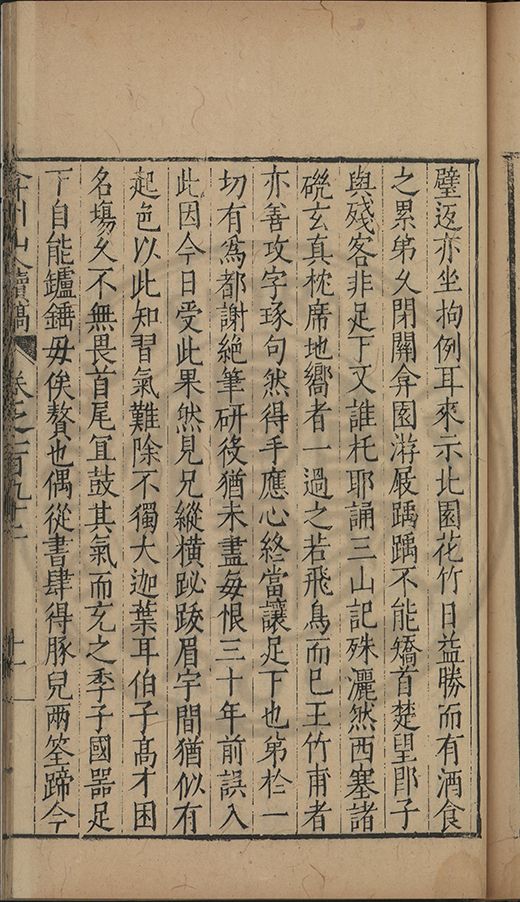 璧返亦坐拘例耳來示北園花竹日益勝而有酒食
之累弟乆閉關弇園游屐踽踽不能矯首楚望郎子
與殘客非足下文誰托耶誦三山記殊灑然西塞諸
磈玄真枕席地嚮者一過之若飛鳥而已王竹甫者
亦善攻字琢句然得手應心終當讓足下也第於一
切有爲都謝絶筆研伇猶未盡每恨三十年前誤入
此因今日受此果然見兄縱橫跋䟦眉宇間猶似有
起色以此知習氣難除不獨大迦葉耳伯子髙才困
名塲乆不無畏首尾冝鼓其氣而充之季子國器足
下自能鑪錘毋俟贅也偶從書肆得豚兒兩筌蹄今
弇州山人續稿 卷之一百九十二 十一